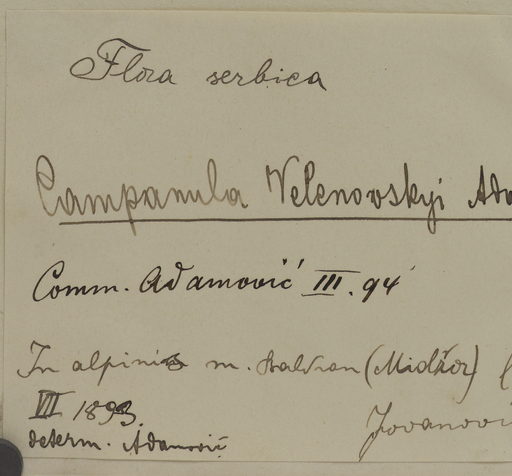 Flora serbica
Campanula Velenovskyi Ada
Comm. Adamović III. 94
In alpinis m. Balkan (Midžor) (
VII 1893.
Jovanovi
determ. Adamović